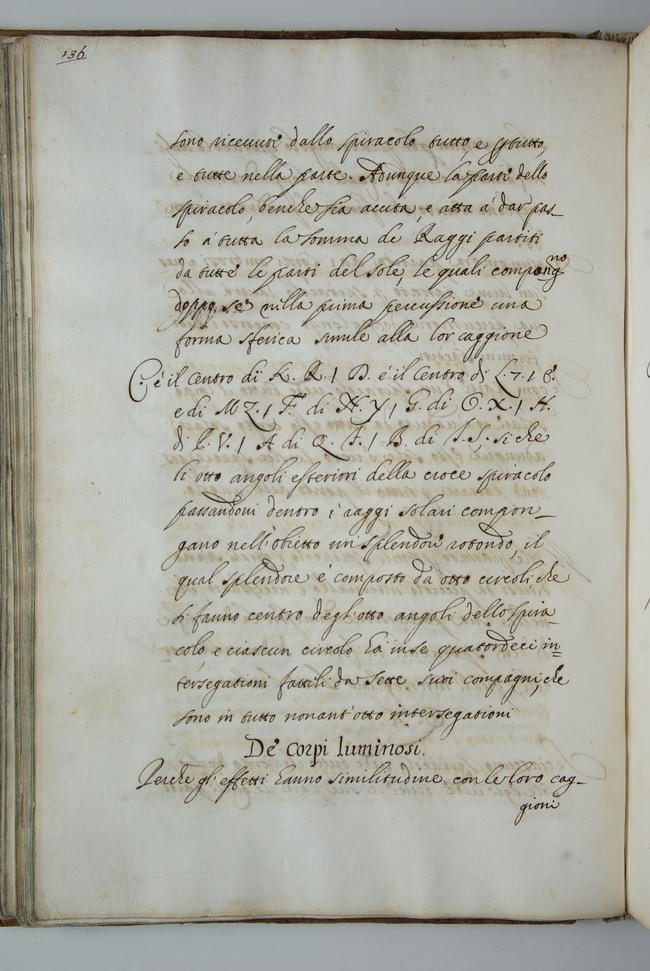 136
sono ricevuti dallo spiracolo tutto, e
e tutte nella parte. Adunque la parti dello
spiracolo benche sia acuta, e atta a' dar pas_
so a' tutta la somma de Raggi partiti
da tutte le parti del sole, le quali compongno
se nella prima percussione una
forma sferica simile alla lor caggione
C. è il centro di K. R. / D. è il centro di L. 7. / E.
e di M Z. / F. di N. Y / G. di O. X. / H.
di P. V. / A di Q. T. / B. di I. S. si che
li otto angoli esteriori della croce spiracolo
passandovi dentro i raggi solari compon_
gano nell'obietto un'splendor rotondo, il
qual splendore è composto da otto circoli che
si fanno centro degl'otto angoli dello spira_
colo e ciascun circolo ha' in se quatordeci in=
tersegationi fattili da sette suoi compagni, che
sono in tutto nonant'otto intersegationi
De' corpi luminosi.
Perche gl'effetti hanno similitudine con le loro cag_
gioni